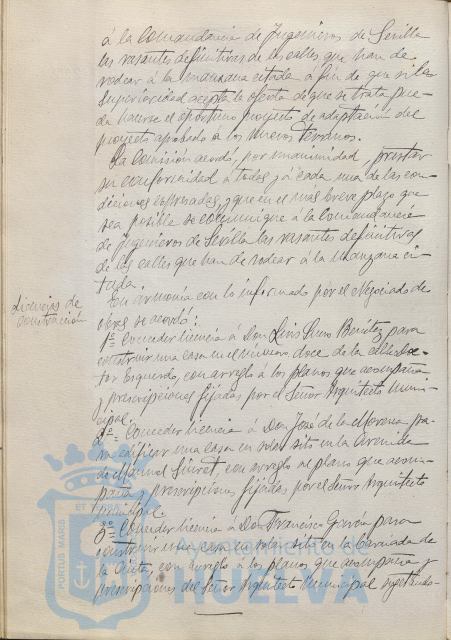 á la Comandancia de Ingenieros de Sevilla
las rasantes definitivas de las calles que han de
rodear á la manzana citada á fin de que si la
Superioridad acepta la oferta de que se trata pue-
da hacerse el oportuno proyecto de adaptación del
proyecto aprobado á los nuevos terrenos.
La Comisión acordó, por unanimidad, prestar
su conformidad á todas y á cada una de las con-
diciones expresadas, y que en el más breve plazo que
sea posible se comunique á la Comandancia
de Ingenieros de Sevilla las rasantes definitivas
de las calles que han de rodear á la manzana ci-
tada.
licencias de
construcción
En armonía con lo informado por el Negociado de
obras se acordó:
1º = Conceder licencia á Don Luis Benítez para
construir una casa en el número doce de la calle Doc-
tor Esquerdo, con arreglo á los planos que acompaña
y prescripciones fijadas por el Señor Arquitecto Muni-
cipal.
2º = Conceder licencia á Don José de la pa-
ra edificar una casa en solar sito en la Avenida
de Manuel Siurot, con arreglo al plano que acom-
paña y prescripciones fijadas por el Señor Arquitecto
Municipal.
3º = Conceder licencia á Don Francisco García para
construir una casa en solar sito en la Barriada de
la con arreglo á los planos que acompaña y
prescripciones del Señor Arquitecto Municipal sujetando-
PORTUS MARIS ET
Ayuntamiento de
HUELVA